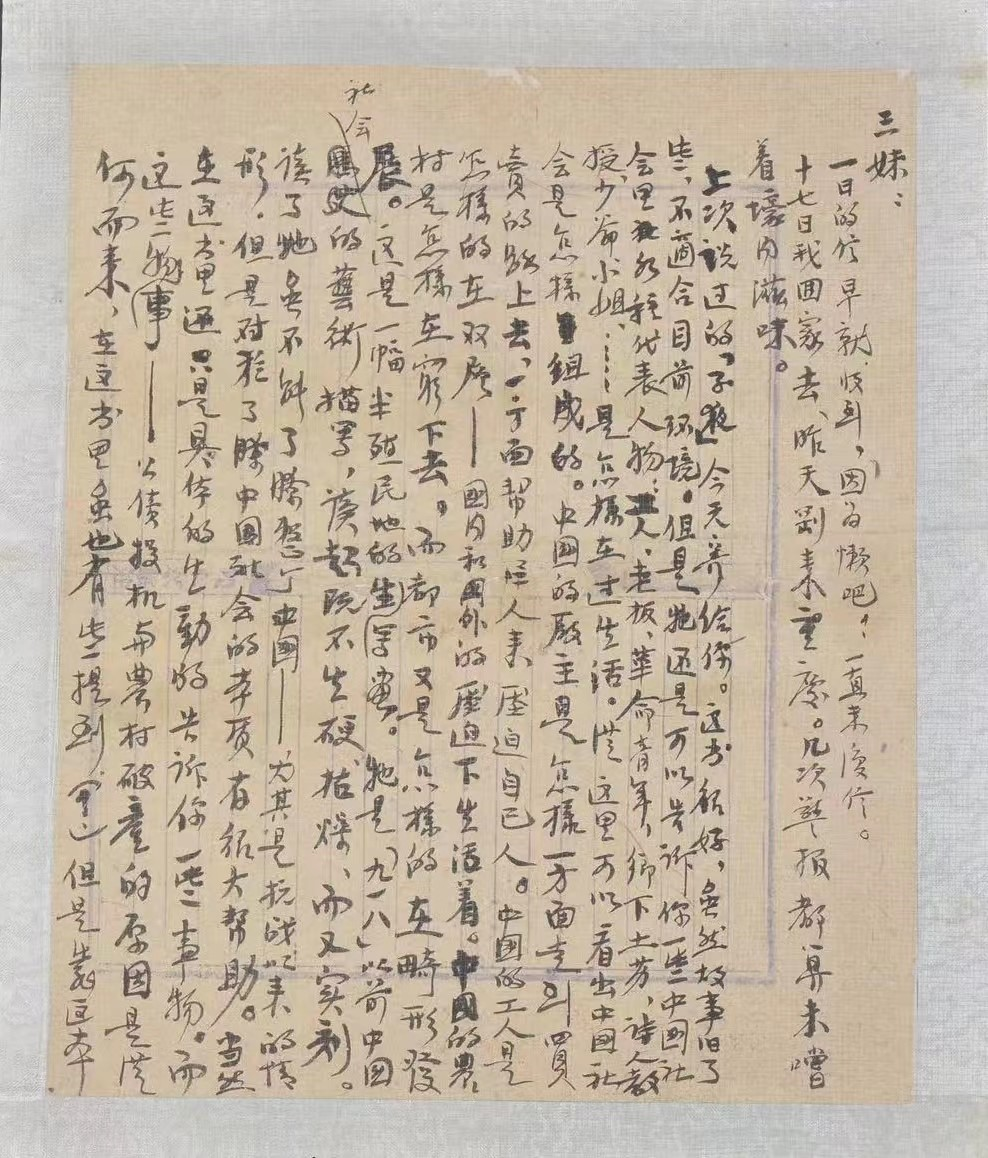 三妹：
一日的信早就收到，因为懒吧，一直未复信。
十七日我回家去，昨天刚来重庆。几次警报都算未嚐
着壕内滋味。
上次说过的，「子夜」今天寄给你。这书很好，虽然故事旧了
些，不适合目前环境。但是牠还是可以告诉你一些中国社
会里各种代表人物：工人、老板、革命青年、乡下土劣、诗人教
授、少爷小姐……是怎样在过生活。从这里可以看出中国社
会是怎样组成的。中国的厂主是怎样一方面走到买
卖的路上去，一方面帮助怪人来压迫自己人。中国的工人是
怎样的在双层——国内和国外的压迫下生活着。中国的农
村是怎样在穷下去。而都市又是怎样的在畸形发
展。这是一幅半殖民地的生写画。牠是「九一八」以前中国
社会的艺术描写，读起既不生硬枯燥，而又实刻。
读了牠虽不能了解整个中国——尤其是抗战以来的情
形，但是对于了解中国社会的本质有很大帮助。当然
在这书里还只是具体的生动的告诉你一些事物。而
这些事物——公债投机与农村破产的原因是从
何而来，在这书里虽也有些提到 但是 这本